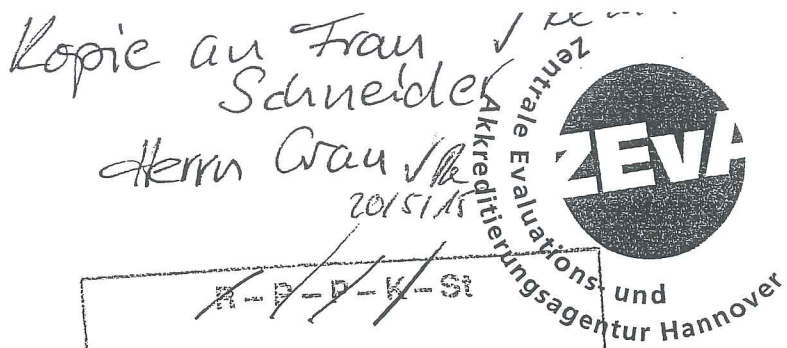 Kopie an Frau
Schneider
Herrn Grau
20/5/15
R-P-P-K-St
ZEvA
Zentrale Evaluations- und
Akkreditierungsagentur Hannover